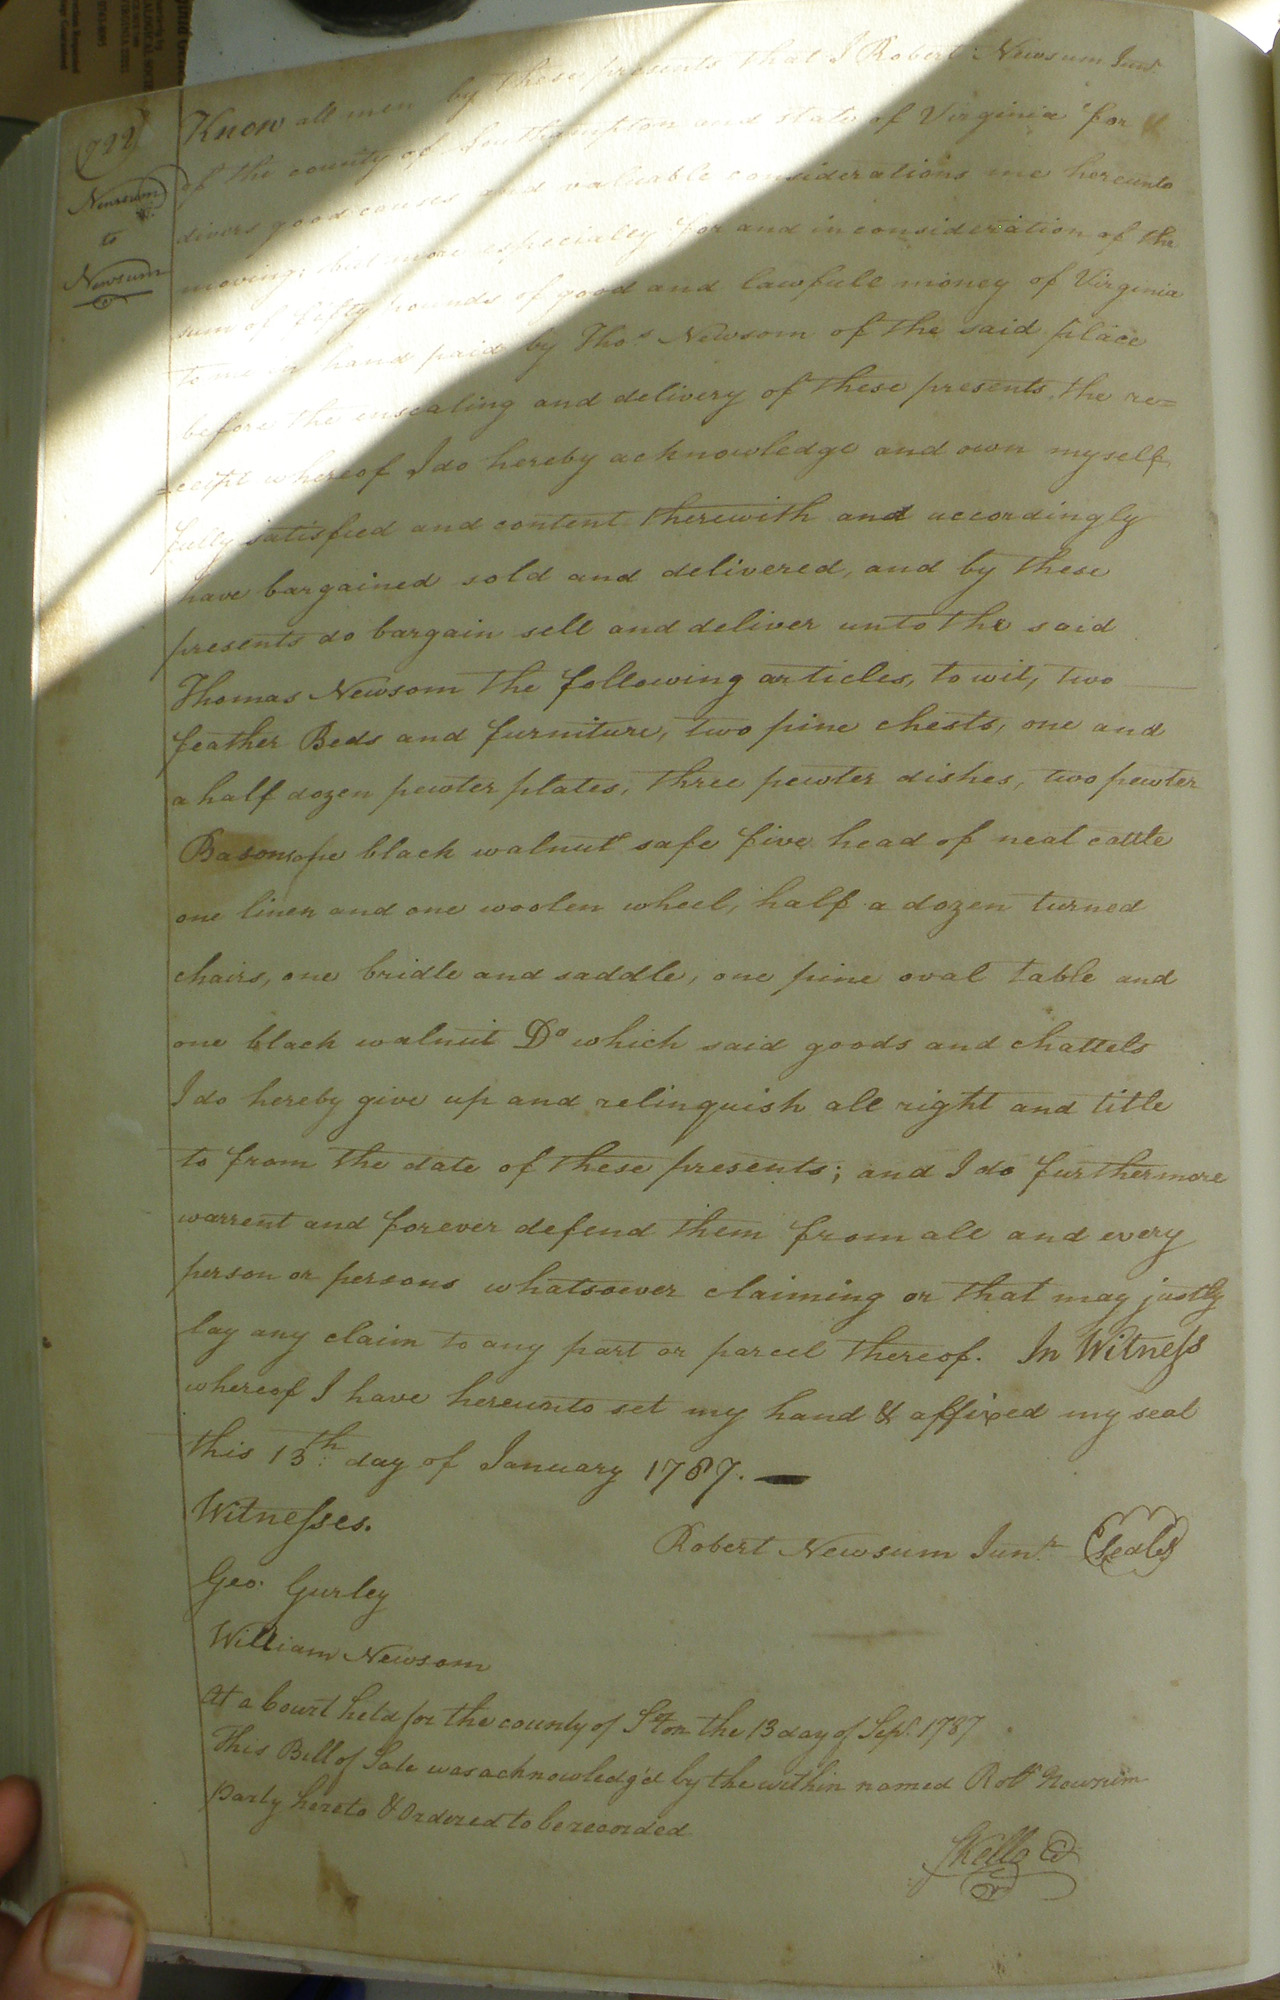 (722)
Newsum
to
Newsum
Know all men by these presents that I Robert Newsum Junr.
of the county of Southampton and state of Virginia for
divers good causes and valuable considerations me hereunto
moving; but more especialey for and in consideration of the
sum of fifty pounds of good and lawfull money of Virginia
to me in hand paid by Thos Newsom of the said place
before the ensealing and delivery of these presents, the re=
=ceipt whereof I do hereby acknowledge and own myself
fully satisfied and content therewith and accordingly
have bargained sold and delivered, and by these
presents do bargain sell and deliver unto the said
Thomas Newsom the following articles, to wit, two
feather Beds and furniture, two pine chests, one and
a half dozen pewter plates, three pewter dishes, two pewter
Basons, one black walnut safe five head of neat cattle
one linen and one woolen wheel, half a dozen turned
chairs, one bridle and saddle, one pine oval table and
one black walnut Do which said goods and chattels
I do hereby give up and relinquish all right and title
to from the date of these presents; and I do furthermore
warrent and forever defend them from all and every
person or persons whatsoever claiming or that may justly
lay any claim to any part or parcel thereof. In Witness
whereof I have hereunto set my hand & affixed my seal
this 13th day of January 1787. —
Witnesses.
Robert Newsum Junr. Seal
Geo. Gurley
William Newsom
At a Court held for the county of Sfton the 13 day of Sepr. 1787
This Bill of Sale was acknowledg'd by the within named Robt Newsum
Party hereto & Ordered to be recorded